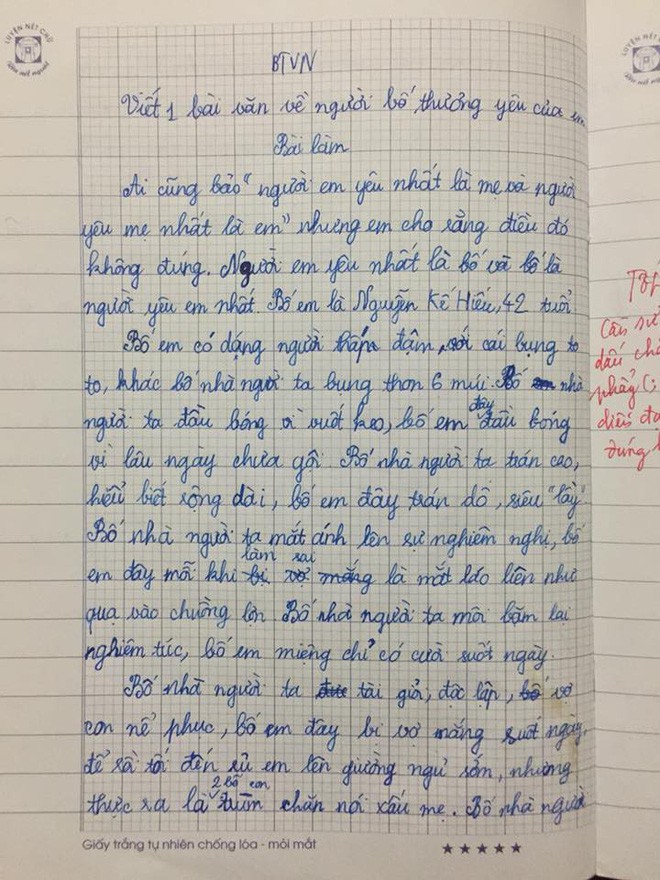 LUYỆN NÉT CHỮ
Rèn nết người
BTVN
Viết 1 bài văn về người bố thương yêu của em
Bài làm
Ai cũng bảo "người em yêu nhất là mẹ và người
yêu mẹ nhất là em" nhưng em cho rằng điều đó
không đúng. Người em yêu nhất là bố và bố là
người yêu em nhất. Bố em là Nguyễn Kế Hiếu, 42 tuổi.
Bố em có dáng người thấp đậm, với cái bụng to
to, khác bố nhà người ta bụng thon 6 múi. Bố nhà
người ta đầu bóng vì vuốt keo, bố em đây đầu bóng
vì lâu ngày chưa gội. Bố nhà người ta trán cao,
hiểu biết rộng dài, bố em đây trán dồ, siêu "lầy"
Bố nhà người ta mắt ánh lên sự nghiêm nghị, bố
em đây mỗi khi làm sai là mắt láo liên như
quạ vào chuồng lợn. Bố nhà người ta môi bặm lại
nghiêm túc, bố em miệng chỉ có cười suốt ngày.
Bố nhà người ta tài giỏi, độc lập, vợ
con nể phục, bố em đây bị vợ mắng suốt ngày,
để rồi tối đến rủ em lên giường ngủ sớm, nhưng
thực ra là 2 bố con trùm chăn nói xấu mẹ. Bố nhà người
Giấy trắng tự nhiên chống lóa - mỏi mắt
★★★★★
LUYỆN NÉT CH
Cần sử
dấu ch
phẩy (;
diễn đạ
đúng